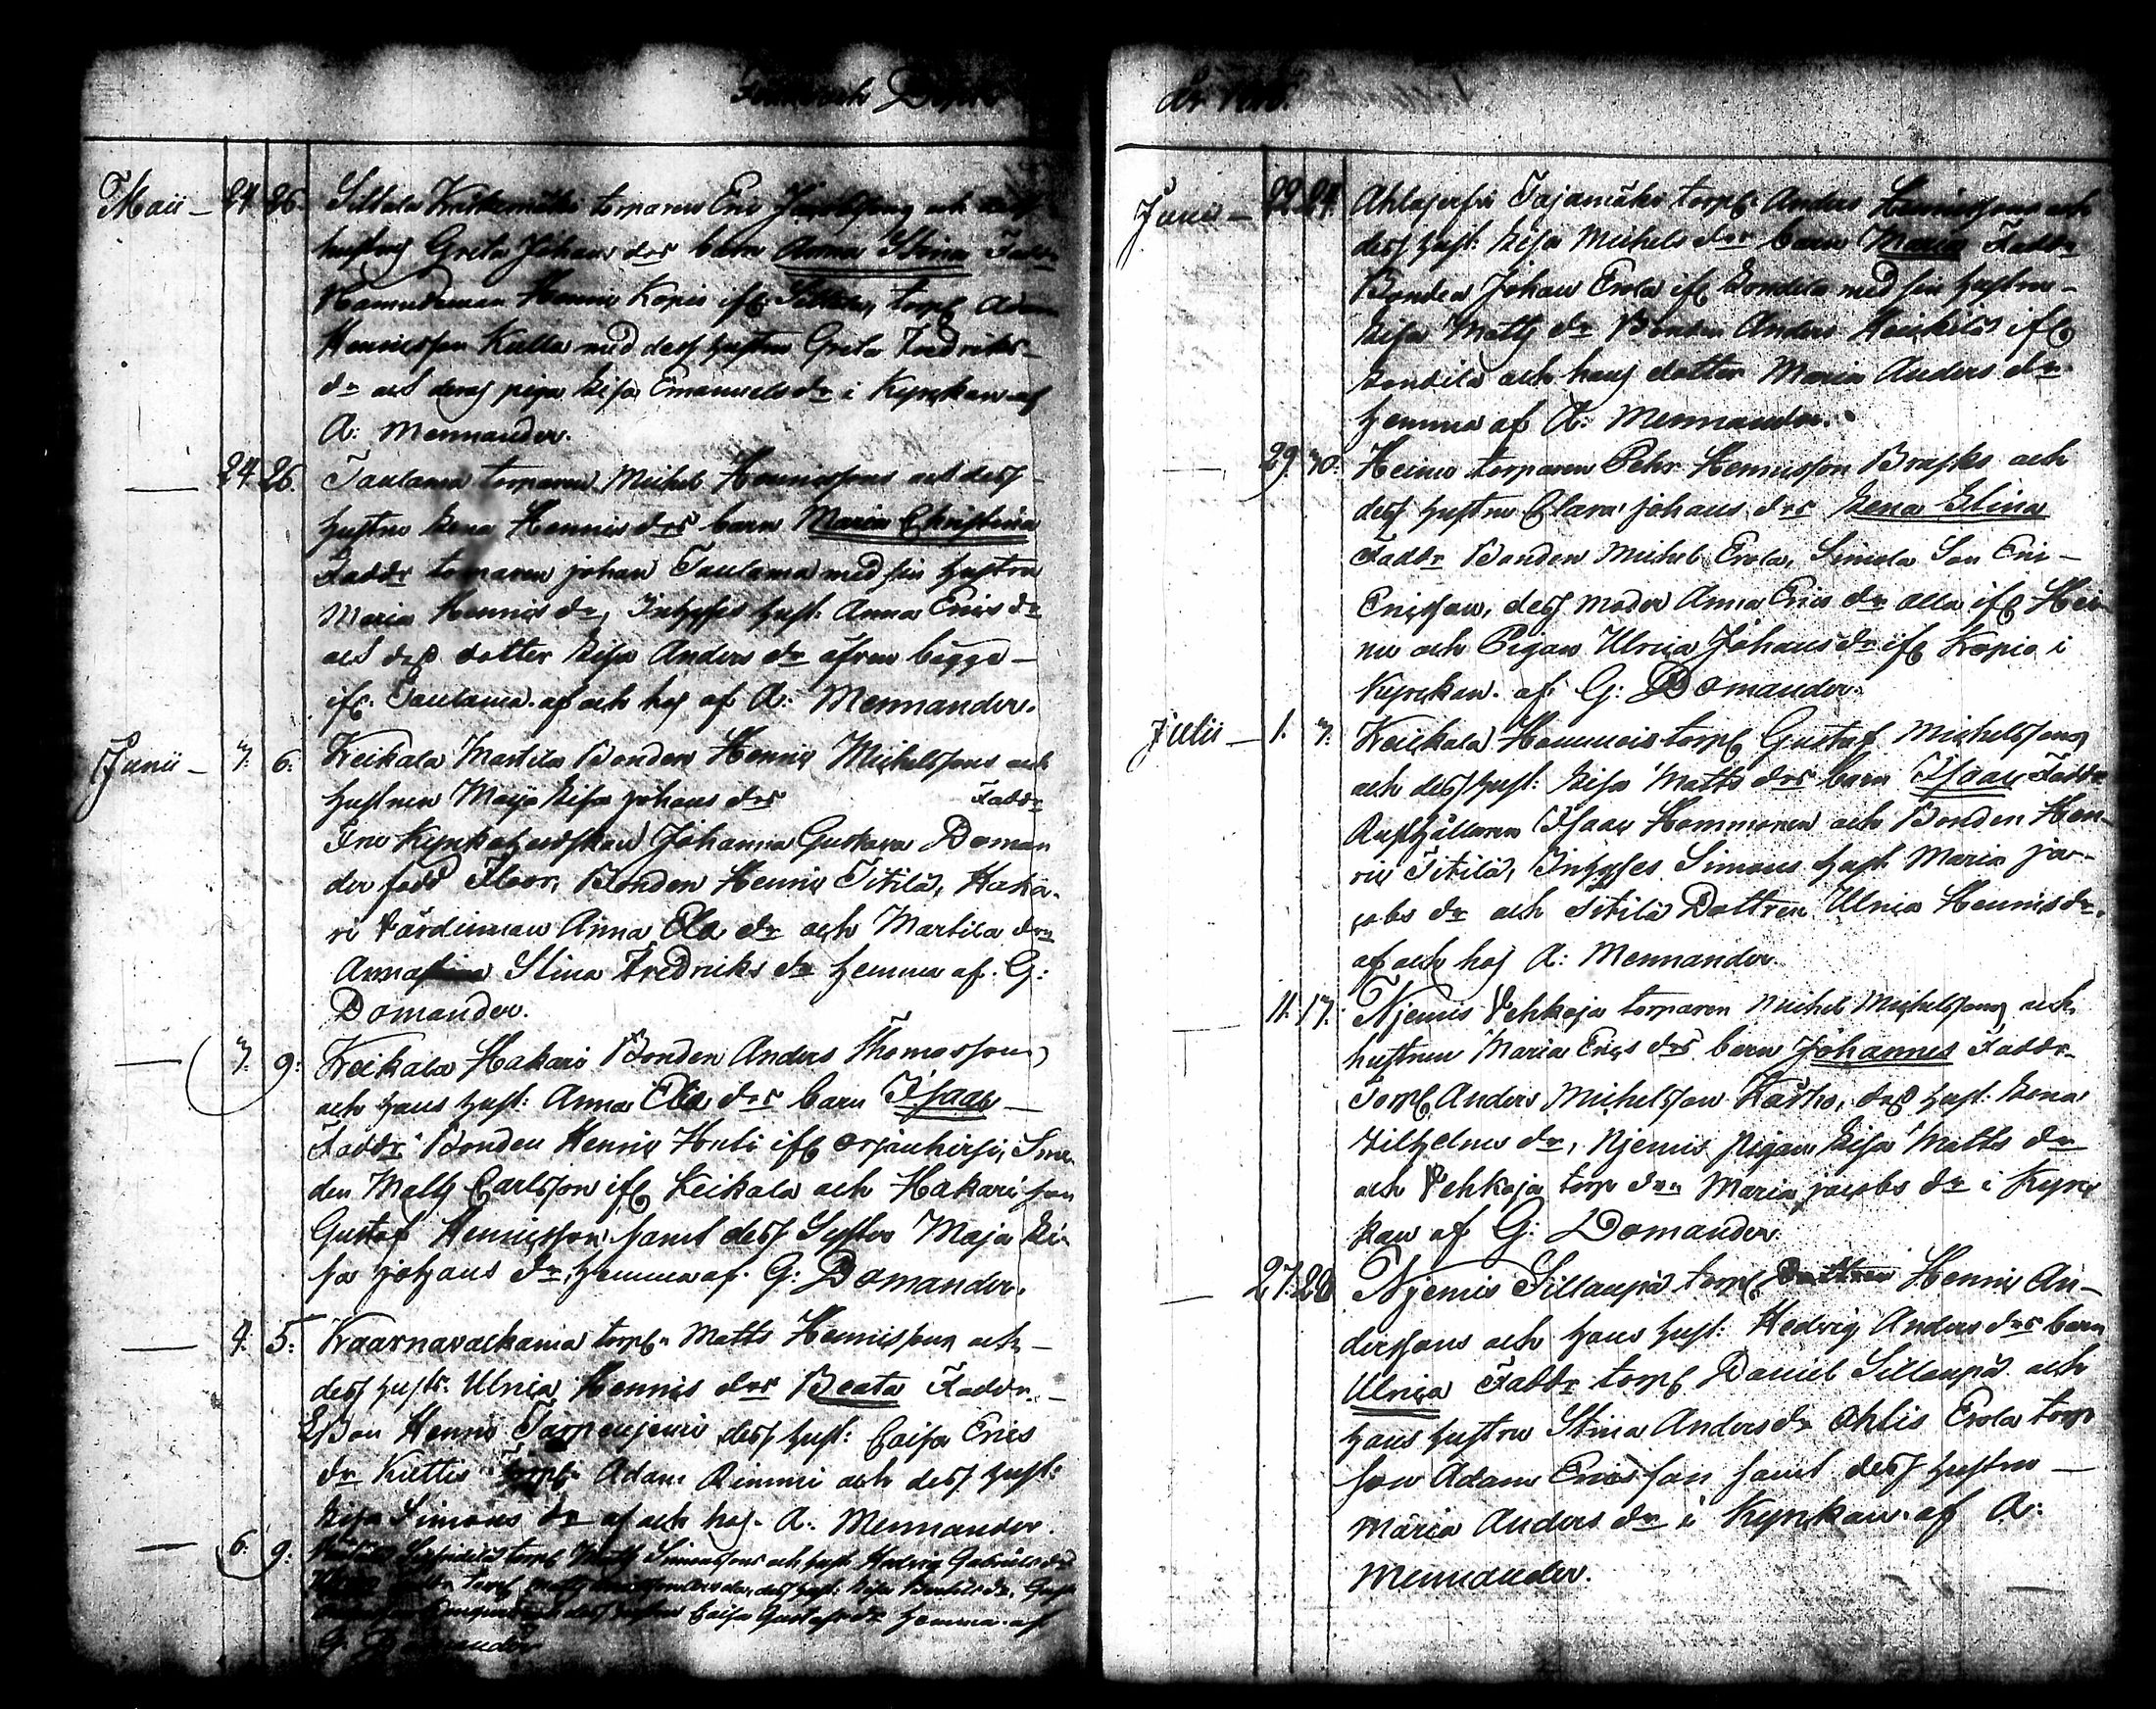 Födde och Döpte
År
Maii – 24. 26. Sillala torparens Eric Jacobssons och dess
hustrus Greta Johans dors barn Anna Stina Faddr
Henric Kopis ifr Sillala, torp Adam
Henricsson Kulla med dess hustru Greta Fredriks-
dr och deras piga Lisa Emanuels dr i Kyrckan af
A: Mennander.
— 24. 26. Taulama torparens Michel Henricssons och dess
hustrus Lena Henrics dors barn Maria Christina
Faddr torparen johan Taulama med sin hustru
Maria Henrics dr, Inhyses hust: Anna Erics dr
och des dotter Lisa Anders dr äfven bägge –
ifr. Taulama. af och hos af A: Mennander.
Junii – 3. 6. Keikala Martila Bonden Henric Michelssons och
hustrun Maija Lisa johans dors Faddr
Fru Kyrkoherdskan Johanna Gustava Doman
der född Floor, Bonden Henric Titilä, Haka-
ri Värdinnan Anna Ela dr och Martila drn
Anna Stina Fredriks dr hemma af. G:
Domander.
— 3. 9: Keikala Hakari Bonden Anders Thomassons
och hans hust: Anna Ela dors barn Isaac –
Faddr Bonden Henric Huli ifr Orjenhirsi, Sme-
den Matts Carlsson ifr Keikala och Hakari son
Gustaf Henricsson samt dess Syster Maja Li-
sa johans dr, hemma af. G: Domander.
— 4: 5: Kaarnavalkama torp. Matts Henricssons och –
dess hustr. Ulrica Henrics dors Beata Faddr –
Henric Tarpenjemi dess hust: Caisa Erics
dr Kuttis torp. Adam Rimmi och dess hust:
Lisa Simons dr af och hos. A: Mennander.
— 6: 9: torp Matts Simonssons och hust Hedvig Gabriels dors
Faddr torp Matts dess hust: Lisa dr, Gust
dess hustru Caisa Gustafs dr hemma af
G. Domander
Junii – 22. 24. Ahlajerfvi Tajamäki torp. Anders Henricssons och
dess hust: Lisa Michels dors barn Maria Faddr
Bonden Johan Erola ifr Londila med sin hustru –
Lisa Matts dr Bonden Anders Heickilä ifr
Londila och hans dotter Maria Anders dr.
hemma af A: Mennander.
— 29. 30: Heinu torparen Pehr Henricsson Brasks och
dess hustru Clara johans dors Lena Stina
Faddr Bonden Michel Erola, Simola Son Eric –
Ericsson, dess moder Anna Erics dr alla ifr Hei-
nu och Pigan Ulrica Johans dr ifr Kropio i
Kyrckan. af G: Domander.
Julii – 1. 3: Keickala Hommois torp Gustaf Michelssons
och dess hust: Lisa Matts dors barn Isaac Faddr
Rusthållaren Isaac Hommonen och Bonden Hen-
ric Titilä, Inhyses Simons hust Maria ja-
cobs dr och Titilä Dottren Ulrica Henrics dr.
af och hos A: Mennander.
— 11. 13: Njemis Vehkoja torparen Michel Michelssons och
hustrun Maria Erics dors barn Johannes Faddr
Torp. Anders Michelsson Kärko, dess hust: Lena
Vilhelms dr, Njemis pigan Lisa Matts dr
och Vehkoja torp drn Maria jacobs dr i Kyrc
kan af G: Domander.
— 27. 28 Njemis Sillanpä torp Henric An-
derssons och hans hust: Hedvig Anders dors barn
Ulrica Faddr torp Daniel Sillanpä och
hans hustru Stina Anders dr Ahlis Erola torp
son Adam Ericsson samt dess hustru –
Maria Anders dr i Kyrckan. af A:
Mennander.